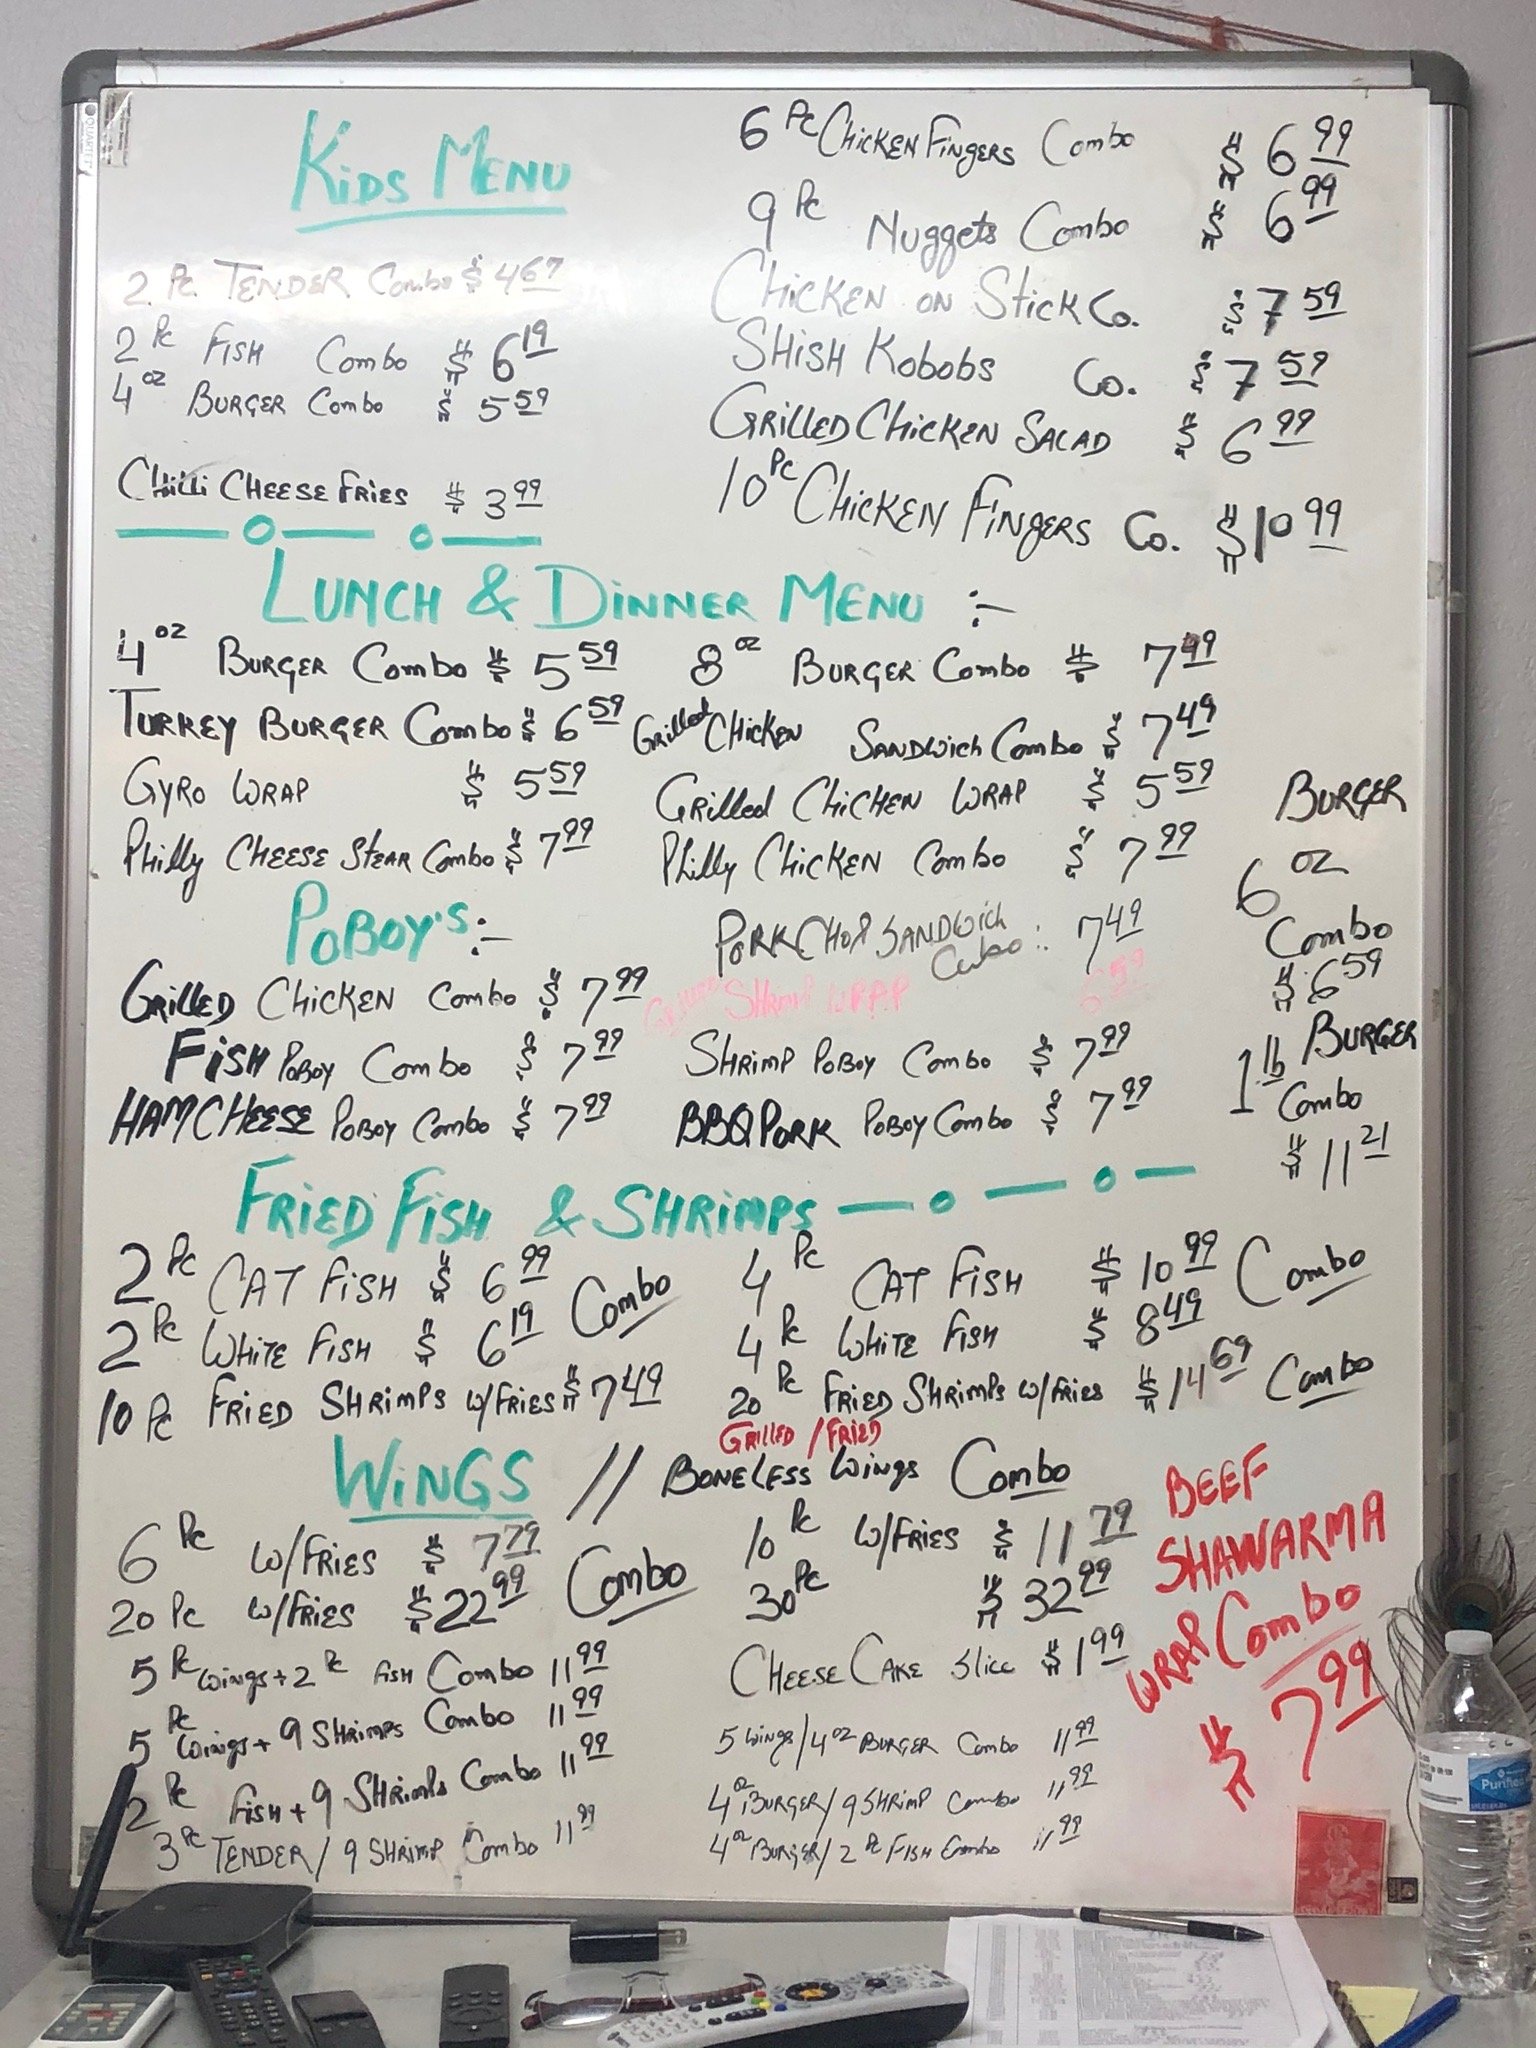 Kids Menu
2 Pc. Tender Combo $ 4.67
2 Pc Fish Combo $ 6.19
4 oz Burger Combo $ 5.59
Chilli Cheese Fries $ 3.99
6 Pc Chicken Fingers Combo $ 6.99
9 Pc Nuggets Combo $ 6.99
Chicken on Stick Co. $ 7.59
Shish Kobobs Co. $ 7.59
Grilled Chicken Salad $ 6.99
10 Pc Chicken Fingers Co. $ 10.99
Lunch & Dinner Menu :-
4 oz Burger Combo $ 5.59 8 oz Burger Combo $ 7.99
Turkey Burger Combo $ 6.59 Grilled Chicken Sandwich Combo $ 7.49
Gyro Wrap $ 5.59 Grilled Chichen Wrap $ 5.59
Philly Cheese Stear Combo $ 7.99 Philly Chicken Combo $ 7.99
Burger
6 oz
Combo
$ 6.59
Burger
1 lb
Combo
$ 11.21
PoBoy's :- Pork Chop Sandwich Cobo :. 7.49
Grilled Chicken Combo $ 7.99 Grilled Shrimp Wrap 6.59
Fish PoBoy Combo $ 7.99 Shrimp PoBoy Combo $ 7.99
Ham Cheese PoBoy Combo $ 7.99 BBQ Pork PoBoy Combo $ 7.99
Fried Fish & Shrimps
2 Pc Cat Fish $ 6.99 Combo 4 Pc Cat Fish $ 10.99 Combo
2 Pc White Fish $ 6.19 4 Pc White Fish $ 8.49
10 Pc Fried Shrimps w/Fries $ 7.49 20 Pc Fried Shrimps w/Fries $ 14.69 Combo
Grilled / Fried
Wings // Boneless Wings Combo
6 Pc w/Fries $ 7.79 Combo 10 Pc w/Fries $ 11.79
20 Pc w/Fries $ 22.99 30 Pc $ 32.99
5 Pc Wings + 2 Pc Fish Combo 11.99 Cheese Cake Slice $ 1.99
5 Pc Wings + 9 Shrimps Combo 11.99 5 Wings / 4 oz Burger Combo 11.99
2 Pc Fish + 9 Shrimps Combo 11.99 4 oz Burger / 9 Shrimp Combo 11.99
3 Pc Tender / 9 Shrimp Combo 11.99 4 oz Burger / 2 Pc Fish Combo 11.99
Beef
Shawarma
Wrap Combo
$ 7.99
QUARTET
Purified